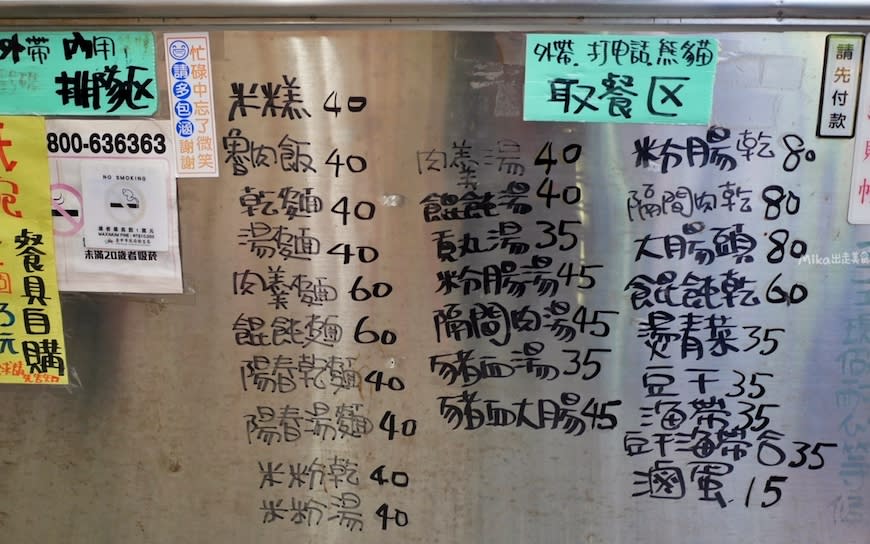 外帶 內用
排隊区
忙碌中忘了微笑
請多包涵
謝謝
800-636363
NO SMOKING
未滿20歲者吸菸
餐具自購
外帶.打电話.熊貓
取餐区
請先付款
米糕 40
魯肉飯 40
乾麵 40
湯麵 40
肉羹麵 60
餛飩麵 60
陽春乾麵 40
陽春湯麵 40
米粉乾 40
米粉湯 40
肉羹湯 40
餛飩湯 40
貢丸湯 35
粉腸湯 45
隔間肉湯 45
豬血湯 35
豬血大腸 45
粉腸乾 80
隔間肉乾 80
大腸頭 80
餛飩乾 60
燙青菜 35
豆干 35
海帶 35
豆干海帶合 35
滷蛋 15
Mika出走美食